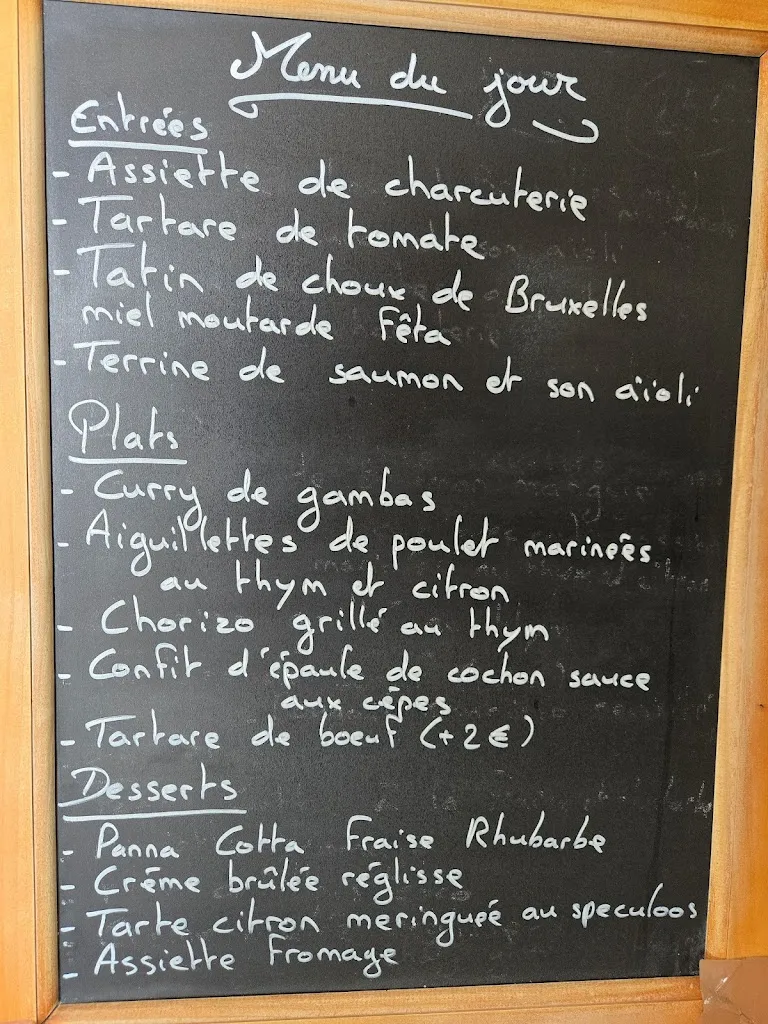 Menu du jour
Entrées
- Assiette de charcuterie
- Tartare de tomate
- Tatin de choux de Bruxelles
miel moutarde Fêta
- Terrine de saumon et son aïoli
Plats
- Curry de gambas
- Aiguillettes de poulet marinées
au thym et citron
- Chorizo grillé au thym
- Confit d'épaule de cochon sauce
aux cèpes
- Tartare de boeuf (+2€)
Desserts
- Panna Cotta Fraise Rhubarbe
- Crème brûlée réglisse
- Tarte citron meringuée au speculoos
- Assiette Fromage